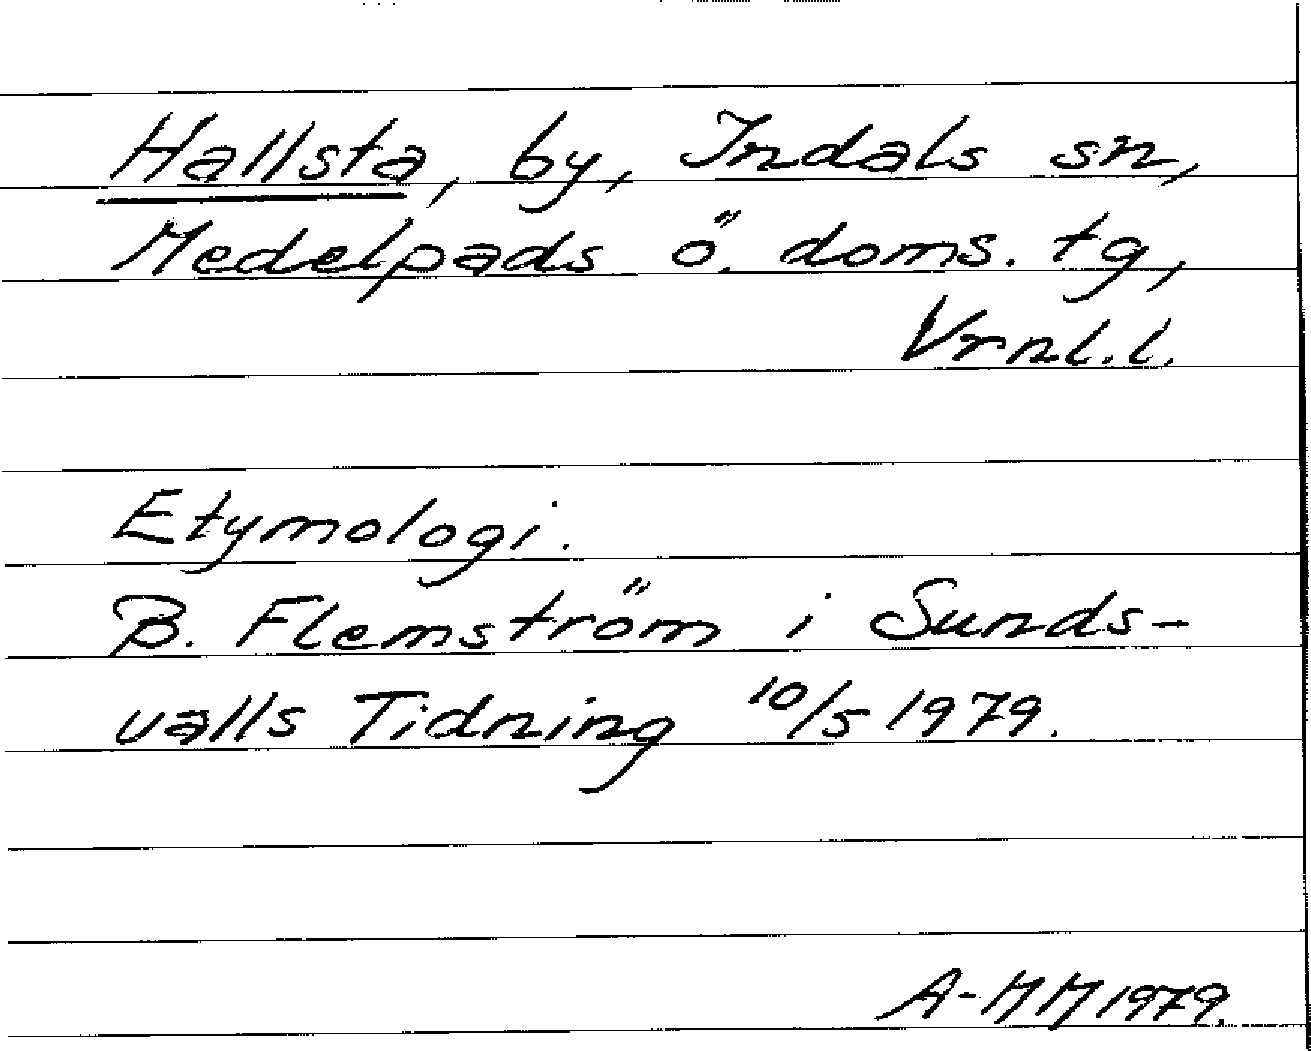 Hallsta, by, Indals sn,
Medelpads ö. doms. tg,
Vrnl.l.
Etymologi.
B. Flemström i Sunds-
valls Tidning 10/5 1979.
A-MM 1979.